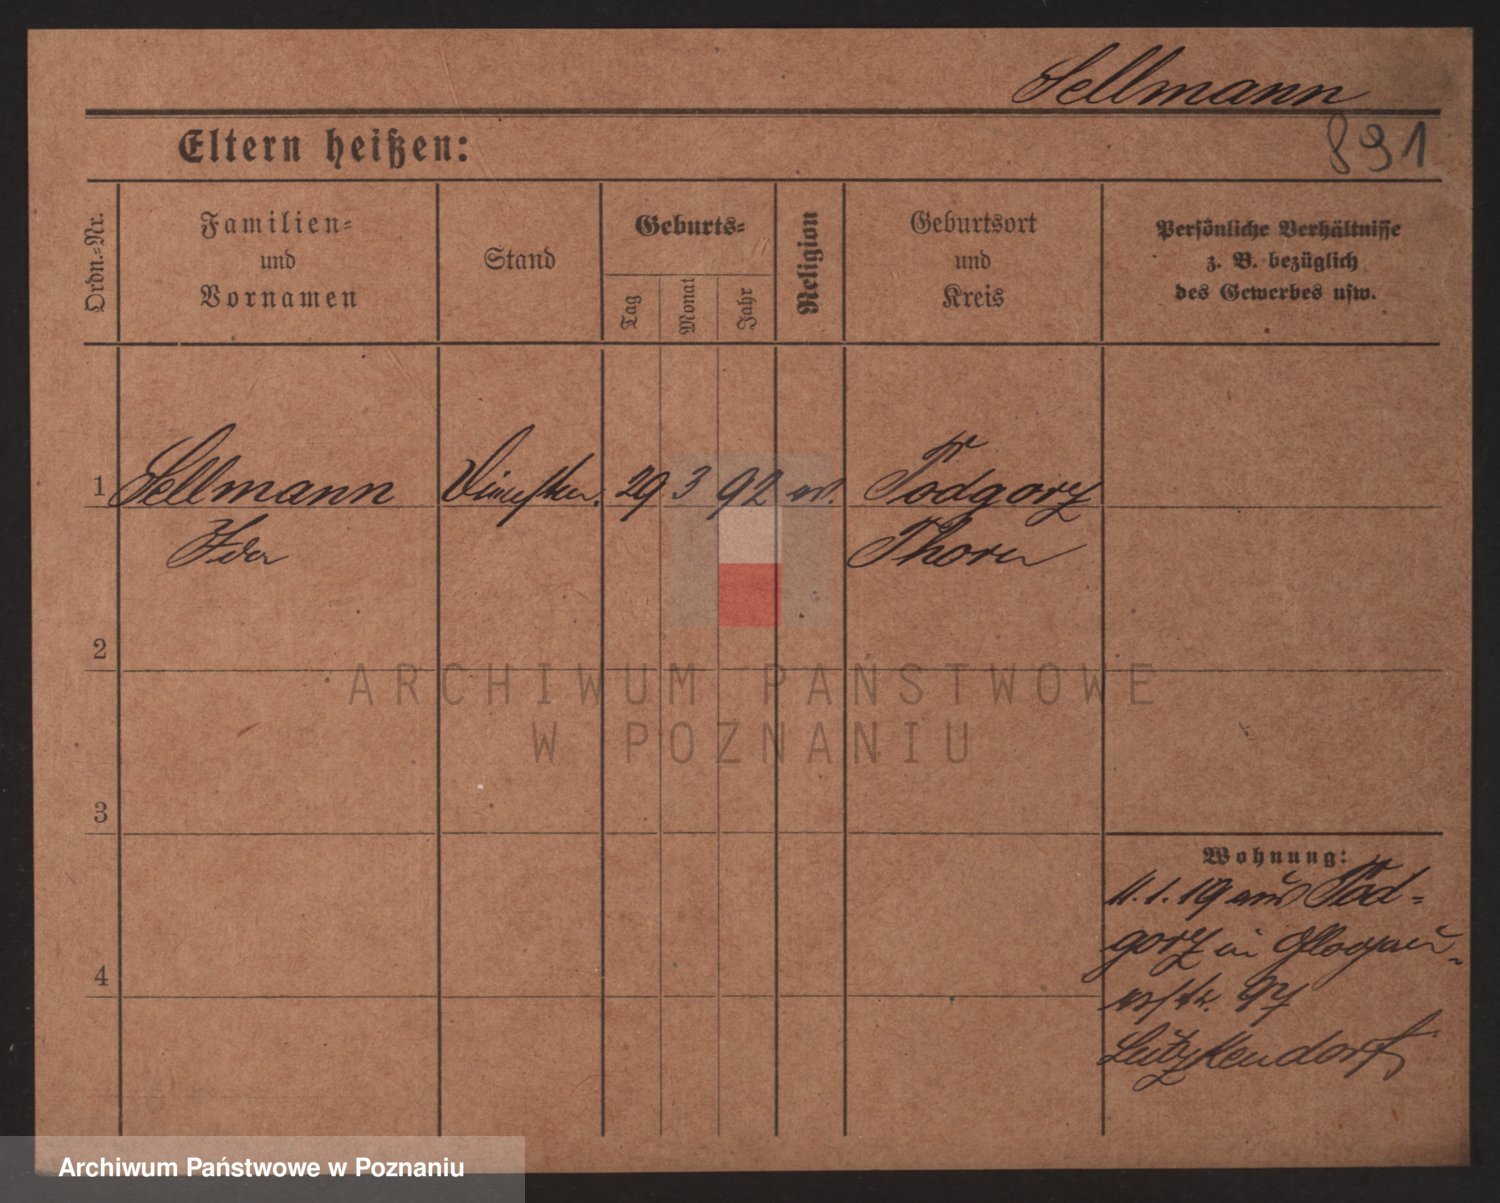 Sellmann
891
Eltern heißen:
Ordn.-Nr.
Familien-
und
Vornamen
Stand
Geburts-
Tag
Monat
Jahr
Religion
Geburtsort
und
Kreis
Persönliche Verhältnisse
z. B. bezüglich
des Gewerbes usw.
1 Sellmann 29 3 92 ev. Podgorz
Ida Thorn
2
3
4
Wohnung:
11.1.19 aus Pod-
gorz in Glogau-
erstr. 97
Lützkendorf
ARCHIWUM PAŃSTWOWE
W POZNANIU
Archiwum Państwowe w Poznaniu